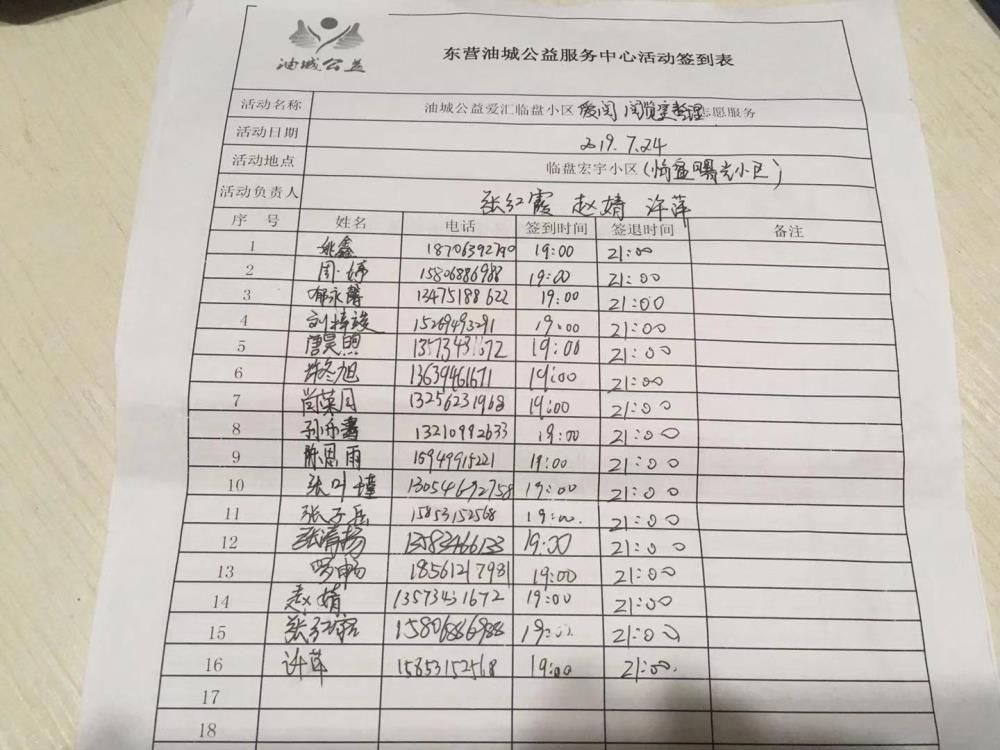 油城公益
东营油城公益服务中心活动签到表
活动名称 油城公益爱汇临盘小区 爱阅 阅览室整理 志愿服务
活动日期 2019.7.24
活动地点 临盘宏宇小区(临盘曙光小区)
活动负责人 张红霞 赵婧 许萍
序 号 姓名 电话 签到时间 签退时间 备注
1 姚鑫 18706392790 19:00 21:00
2 周婷 15806886988 19:00 21:00
3 郇永馨 13475188622 19:00 21:00
4 刘梓竣 15269493291 19:00 21:00
5 唐昊煦 13573431672 19:00 21:00
6 冬旭 13639461671 19:00 21:00
7 尚荣月 13256231968 19:00 21:00
8 孙 13210992633 19:00 21:00
9 陈思雨 15949915221 19:00 21:00
10 张叶瑾 13054692758 19:00 21:00
11 张子岳 15853152568 19:00 21:00
12 张清扬 13583466133 19:00 21:00
13 罗畅 18561217981 19:00 21:00
14 赵婧 13573431672 19:00 21:00
15 张红霞 15806886988 19:00 21:00
16 许萍 15853152568 19:00 21:00
17
18